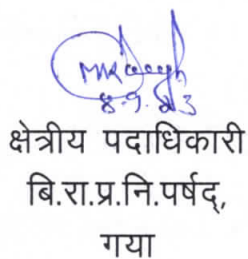 8.9.23
क्षेत्रीय पदाधिकारी
बि.रा.प्र.नि.पर्षद्,
गया